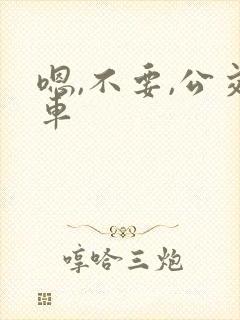 嗯,不要,公交
车
哼哈三炮